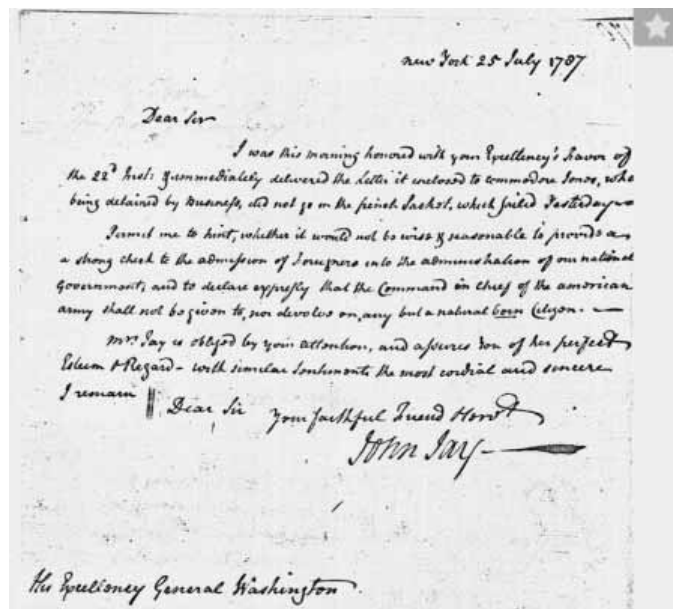 new York 25 July 1787
Dear Sir
I was this morning honored with your Excellency's Favor of
the 22d Inst: & immediately delivered the Letter it enclosed to commodore Jones, who
being detained by Business, did not go in the french Packet, which sailed Yesterday
Permit me to hint, whether it would not be wise & seasonable to provide a
a strong check to the admission of Foreigners into the administration of our national
Government; and to declare expressly that the Command in chief of the american
army shall not be given to, nor devolve on, any but a natural born Citizen.
Mrs. Jay is obliged by your attention, and assures You of her perfect
Esteem & Regard - with similar Sentiments the most cordial and sincere
I remain || Dear Sir Your faithful Friend & Servt
John Jay
His Excellency General Washington